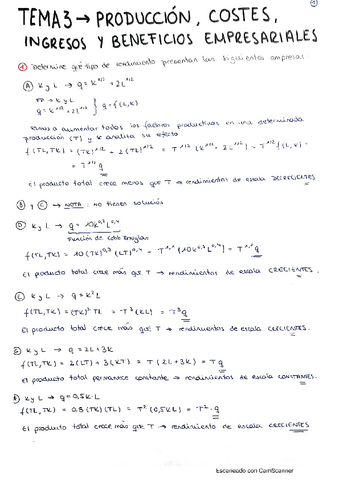 ①
TEMA 3 → PRODUCCIÓN, COSTES,
INGRESOS Y BENEFICIOS EMPRESARIALES
① Determine qué tipo de rendimiento presentan las siguientes empresas:
Ⓐ K y L → q = K^1/2 + 2L^1/2
FP → K y L
q = K^1/2 + 2L^1/2 } q = f(L,K)
Vamos a aumentar todos los factores productivos en una determinada
producción (T) y se analiza su efecto
f(TL, TK) = (TK)^1/2 + 2(TL)^1/2 = T^1/2 (K^1/2 + 2L^1/2) = T^1/2 f(L,K) =
= T^1/2 q
El producto total crece menos que T → rendimientos de escala DECRECIENTES
Ⓑ y Ⓒ → NOTA: no tienen solución
Ⓓ K y L → q = 10K L
Función de Cobb Douglas
f(TL, TK) = 10 (TK) (LT) = T (10K L) = T q
El producto total crece más que T → rendimientos de escala CRECIENTES.
K y L → q = K² L
f(TL, TK) = (TK)² TL = T³ (KL) = T³ q
El producto total crece más que T → rendimientos de escala CRECIENTES.
K y L → q = 2L + 3K
f(TL, TK) = 2(LT) + 3(KT) = T (2L + 3K) = Tq
El producto total permanece constante → rendimientos de escala CONSTANTES.
K y L → q = 0,5K·L
f(TL, TK) = (TK)(TL) = T² (0,5KL) = T² · q
El producto total crece más que T → rendimiento de escala CRECIENTES
Escaneado con CamScanner